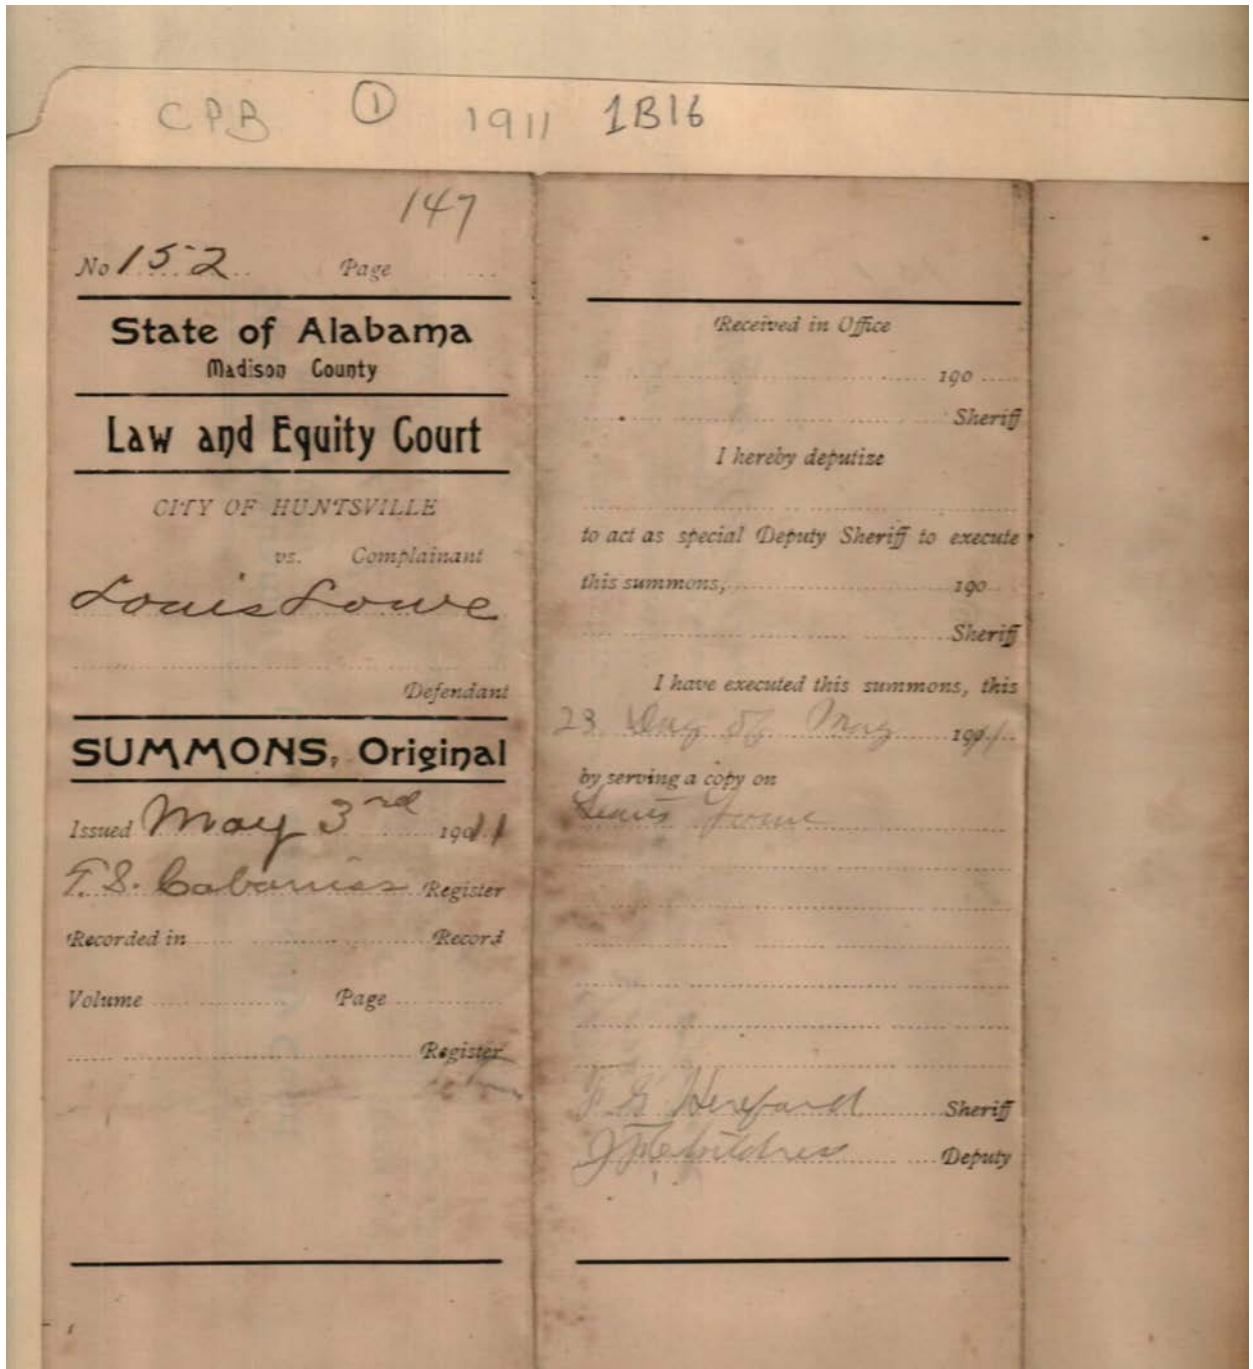 CPB ① 1911 1B16
147
No 152 Page
State of Alabama
Madison County
Law and Equity Court
CITY OF HUNTSVILLE
vs. Complainant
Louis Lowe
Defendant
SUMMONS, Original
Issued May 3rd 1911
T. S. Cabaniss Register
Recorded in Record
Volume Page
Register
Received in Office
190
Sheriff
I hereby deputize
to act as special Deputy Sheriff to execute
this summons, 190
Sheriff
I have executed this summons, this
23 Day of May 1911
by serving a copy on
Louis Lowe
Hereford Sheriff
Deputy